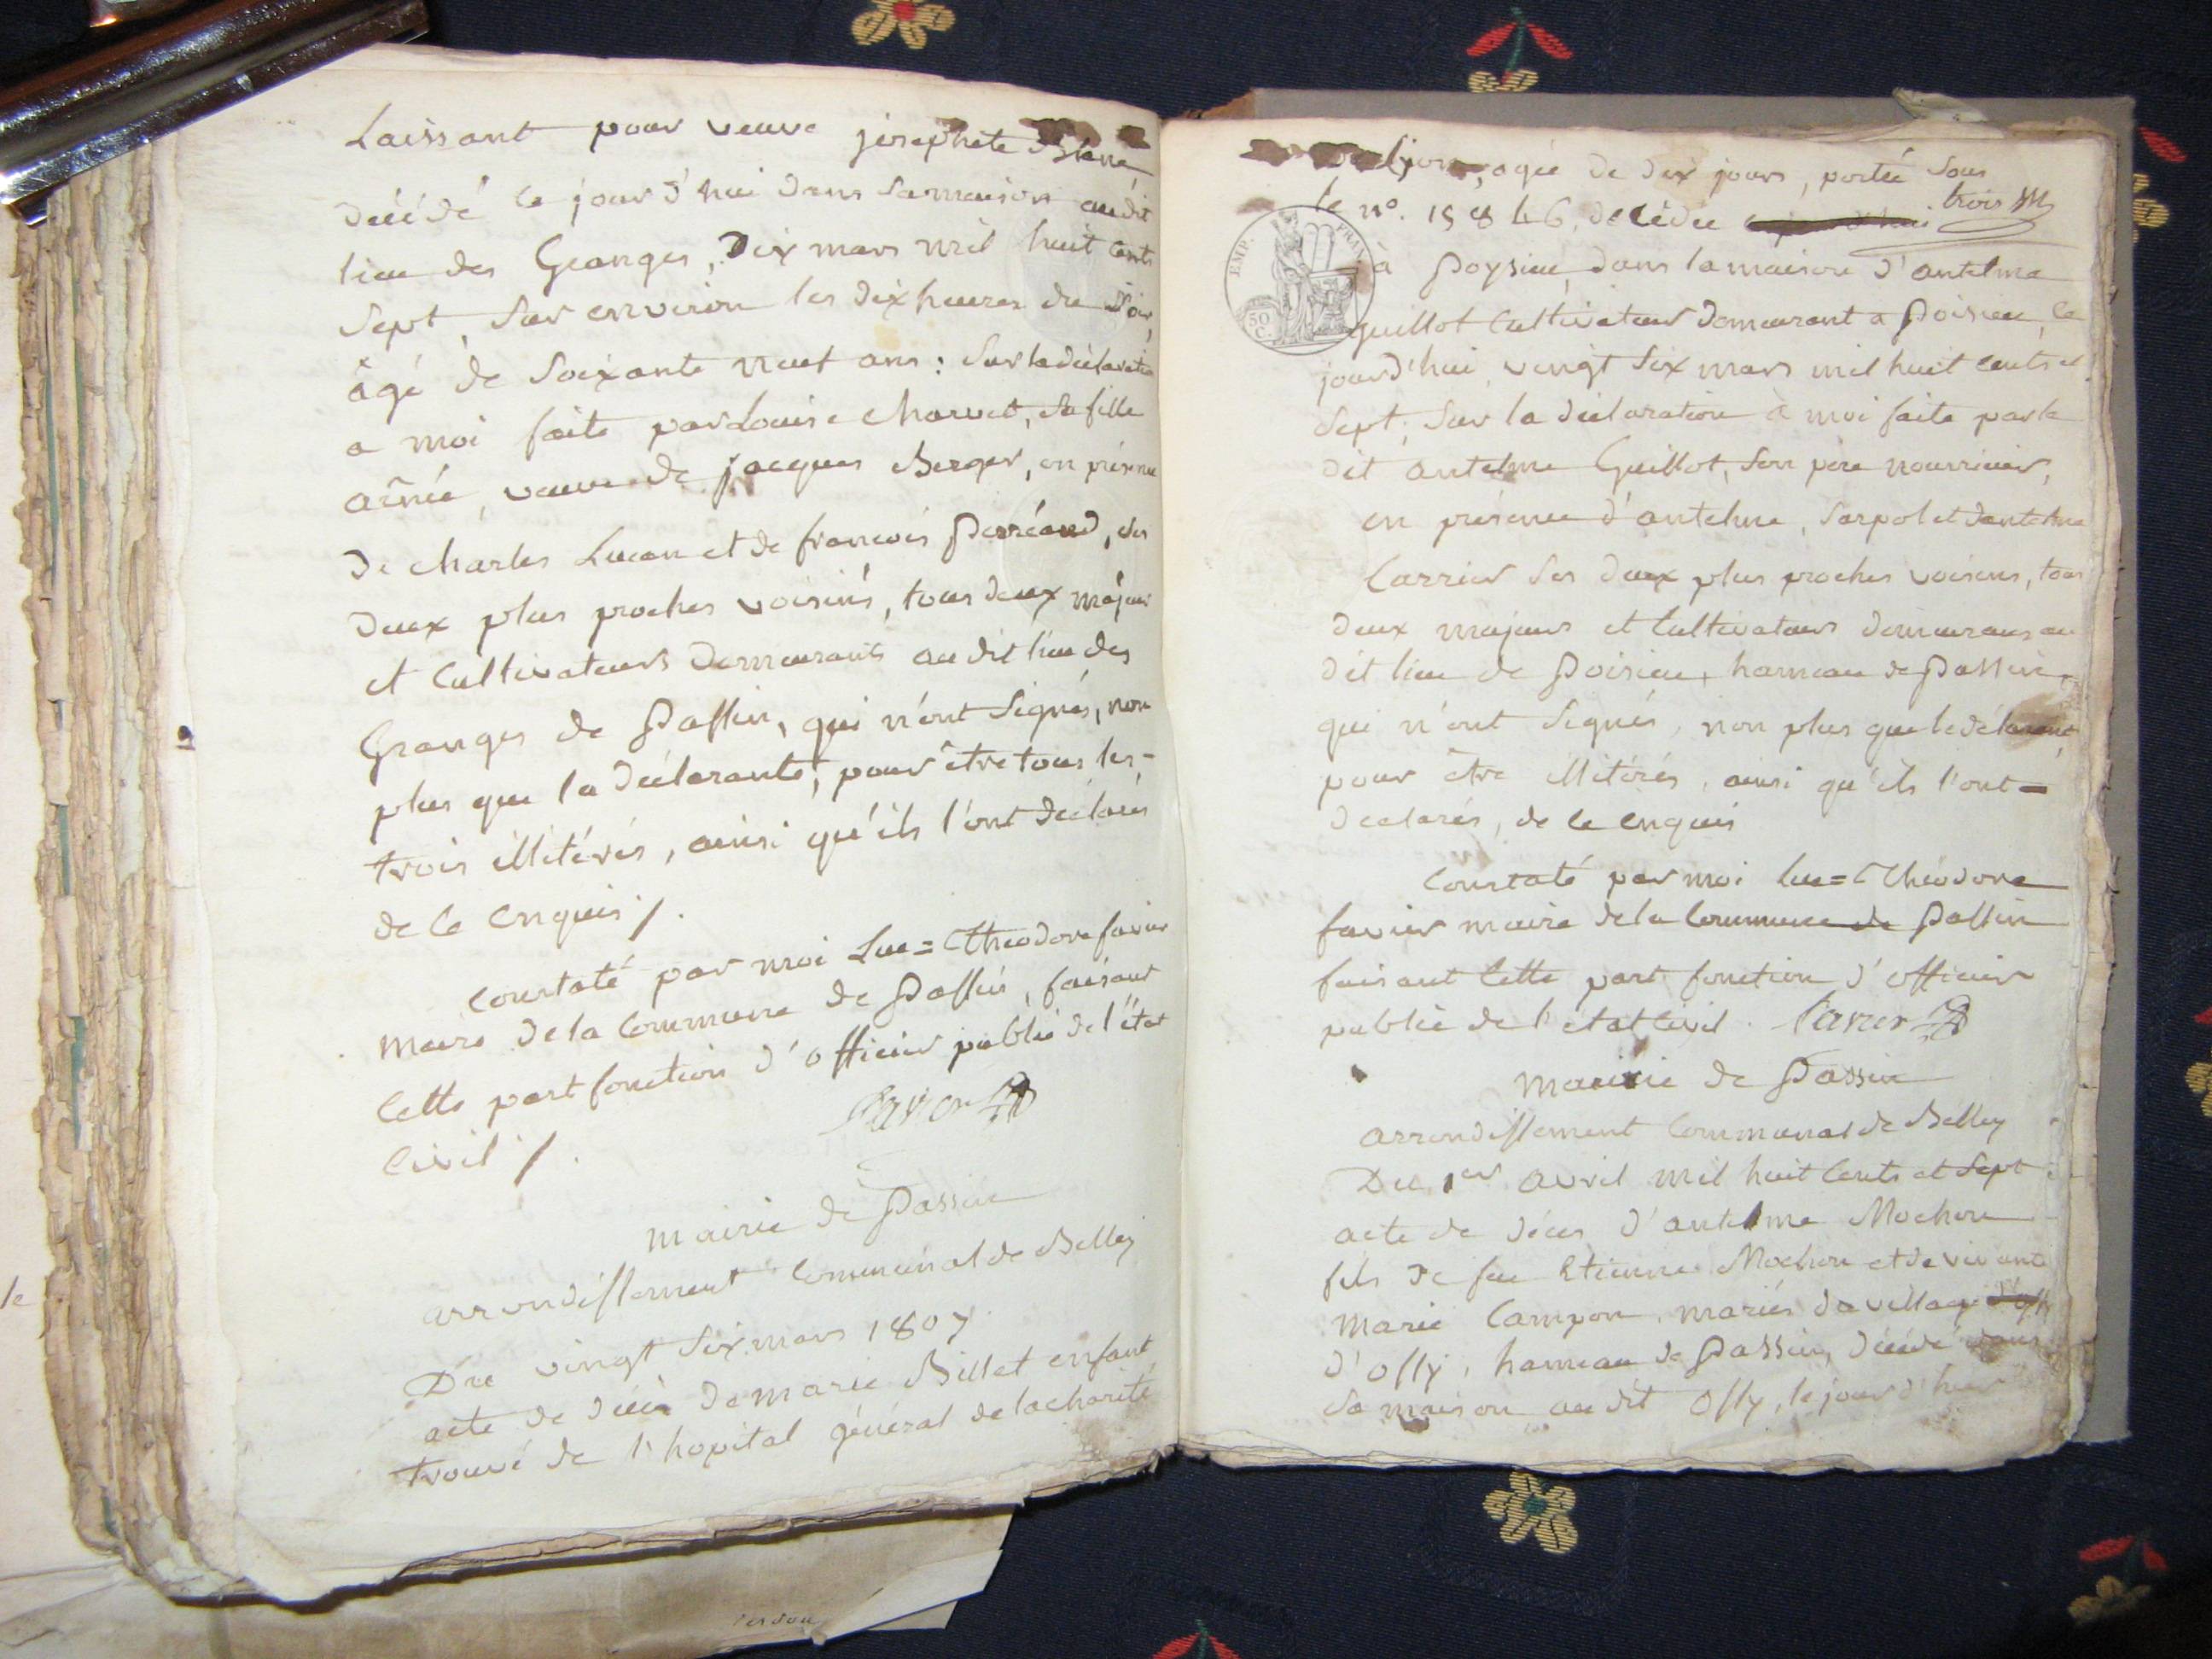 Laissant pour veuve josephete Blanc
décédé le jour d'hui dans sa maison audit
lieu des Granges, Dix mars mil huit cents
sept, sur environ les dix heures du soir,
âgé de soixante neuf ans : sur la déclaration
a moi faite par Louise Charvet, sa fille
aînée, veuve de jacques Berger, en présence
de charles Lucan et de francois Perréand, ses
deux plus proches voisins, tous deux majeurs
et cultivateurs demeurants au dit lieu des
Granges de Passin, qui n'ont signés, non
plus que la déclarante, pour être tous les-
trois illitérés, ainsi qu'ils l'ont déclarés
de ce enquis /.
Constaté par moi Luc=Théodore favier
maire de la Commune de Passin, faisant
cette part fonction d'officier public de l'état
civil /.
favier
mairie de Passin
arrondissement communal de Belley
Du vingt six mars 1807
acte de décès de marie Billet enfant
trouvé de l'hopital général de la charité
de lyon, agée de dix jours, portée sous
trois
le n°. 15846, décédée
à Poysieu, dans la maison d'antelme
guillot cultivateur demeurant a Poisieu, le
jourd'hui, vingt six mars mil huit cents et
sept, sur la déclaration à moi faite par le
dit antelme Guillot, son père nourricier,
en présence d'antelme, Sarpolet d'antelme
Carrier ses deux plus proches voisins, tous
deux majeurs et cultivateurs demeurans au
dit lieu de Poisieu, hameau de Passin,
qui n'ont signés, non plus que le déclarant,
pour être illitérés, ainsi qu'ils l'ont=
declarés, de ce enquis
Constaté par moi Luc=Théodore
favier maire de la Commune de Passin
faisant cette part fonction d'officier
public de l'état civil. favier
Mairie de Passin
arrondissement communal de Belley
Du 1er avril mil huit cents et sept
acte de décès d'antelme Mochon
fils de feu Etienne Mochon et de vivante
Marie Campon, mariés du village
d'Ossy, hameau de Passin, décédé dans
sa maison au dit Ossy, le jour d'hui
EMP. FRAN.
50
C.
le